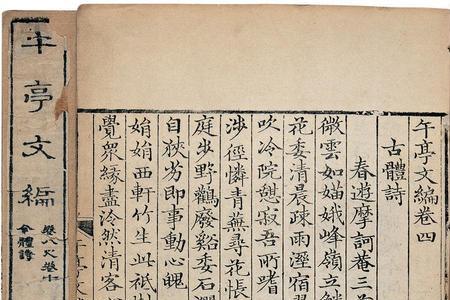 午亭文編卷四
古體詩
春遊摩訶菴三
微雲如媌娥峰嶺立
花委清晨疎雨溼宿
吹冷院憩寂吾所嗜
涉徑憐青蕪尋花悵
庭步野鸛廢谿委石
自狹劣即事動心魄
娟娟西軒竹生此祇
覺眾緣盡泠然清客
午亭文
午亭文編
卷八之卷十
今體詩